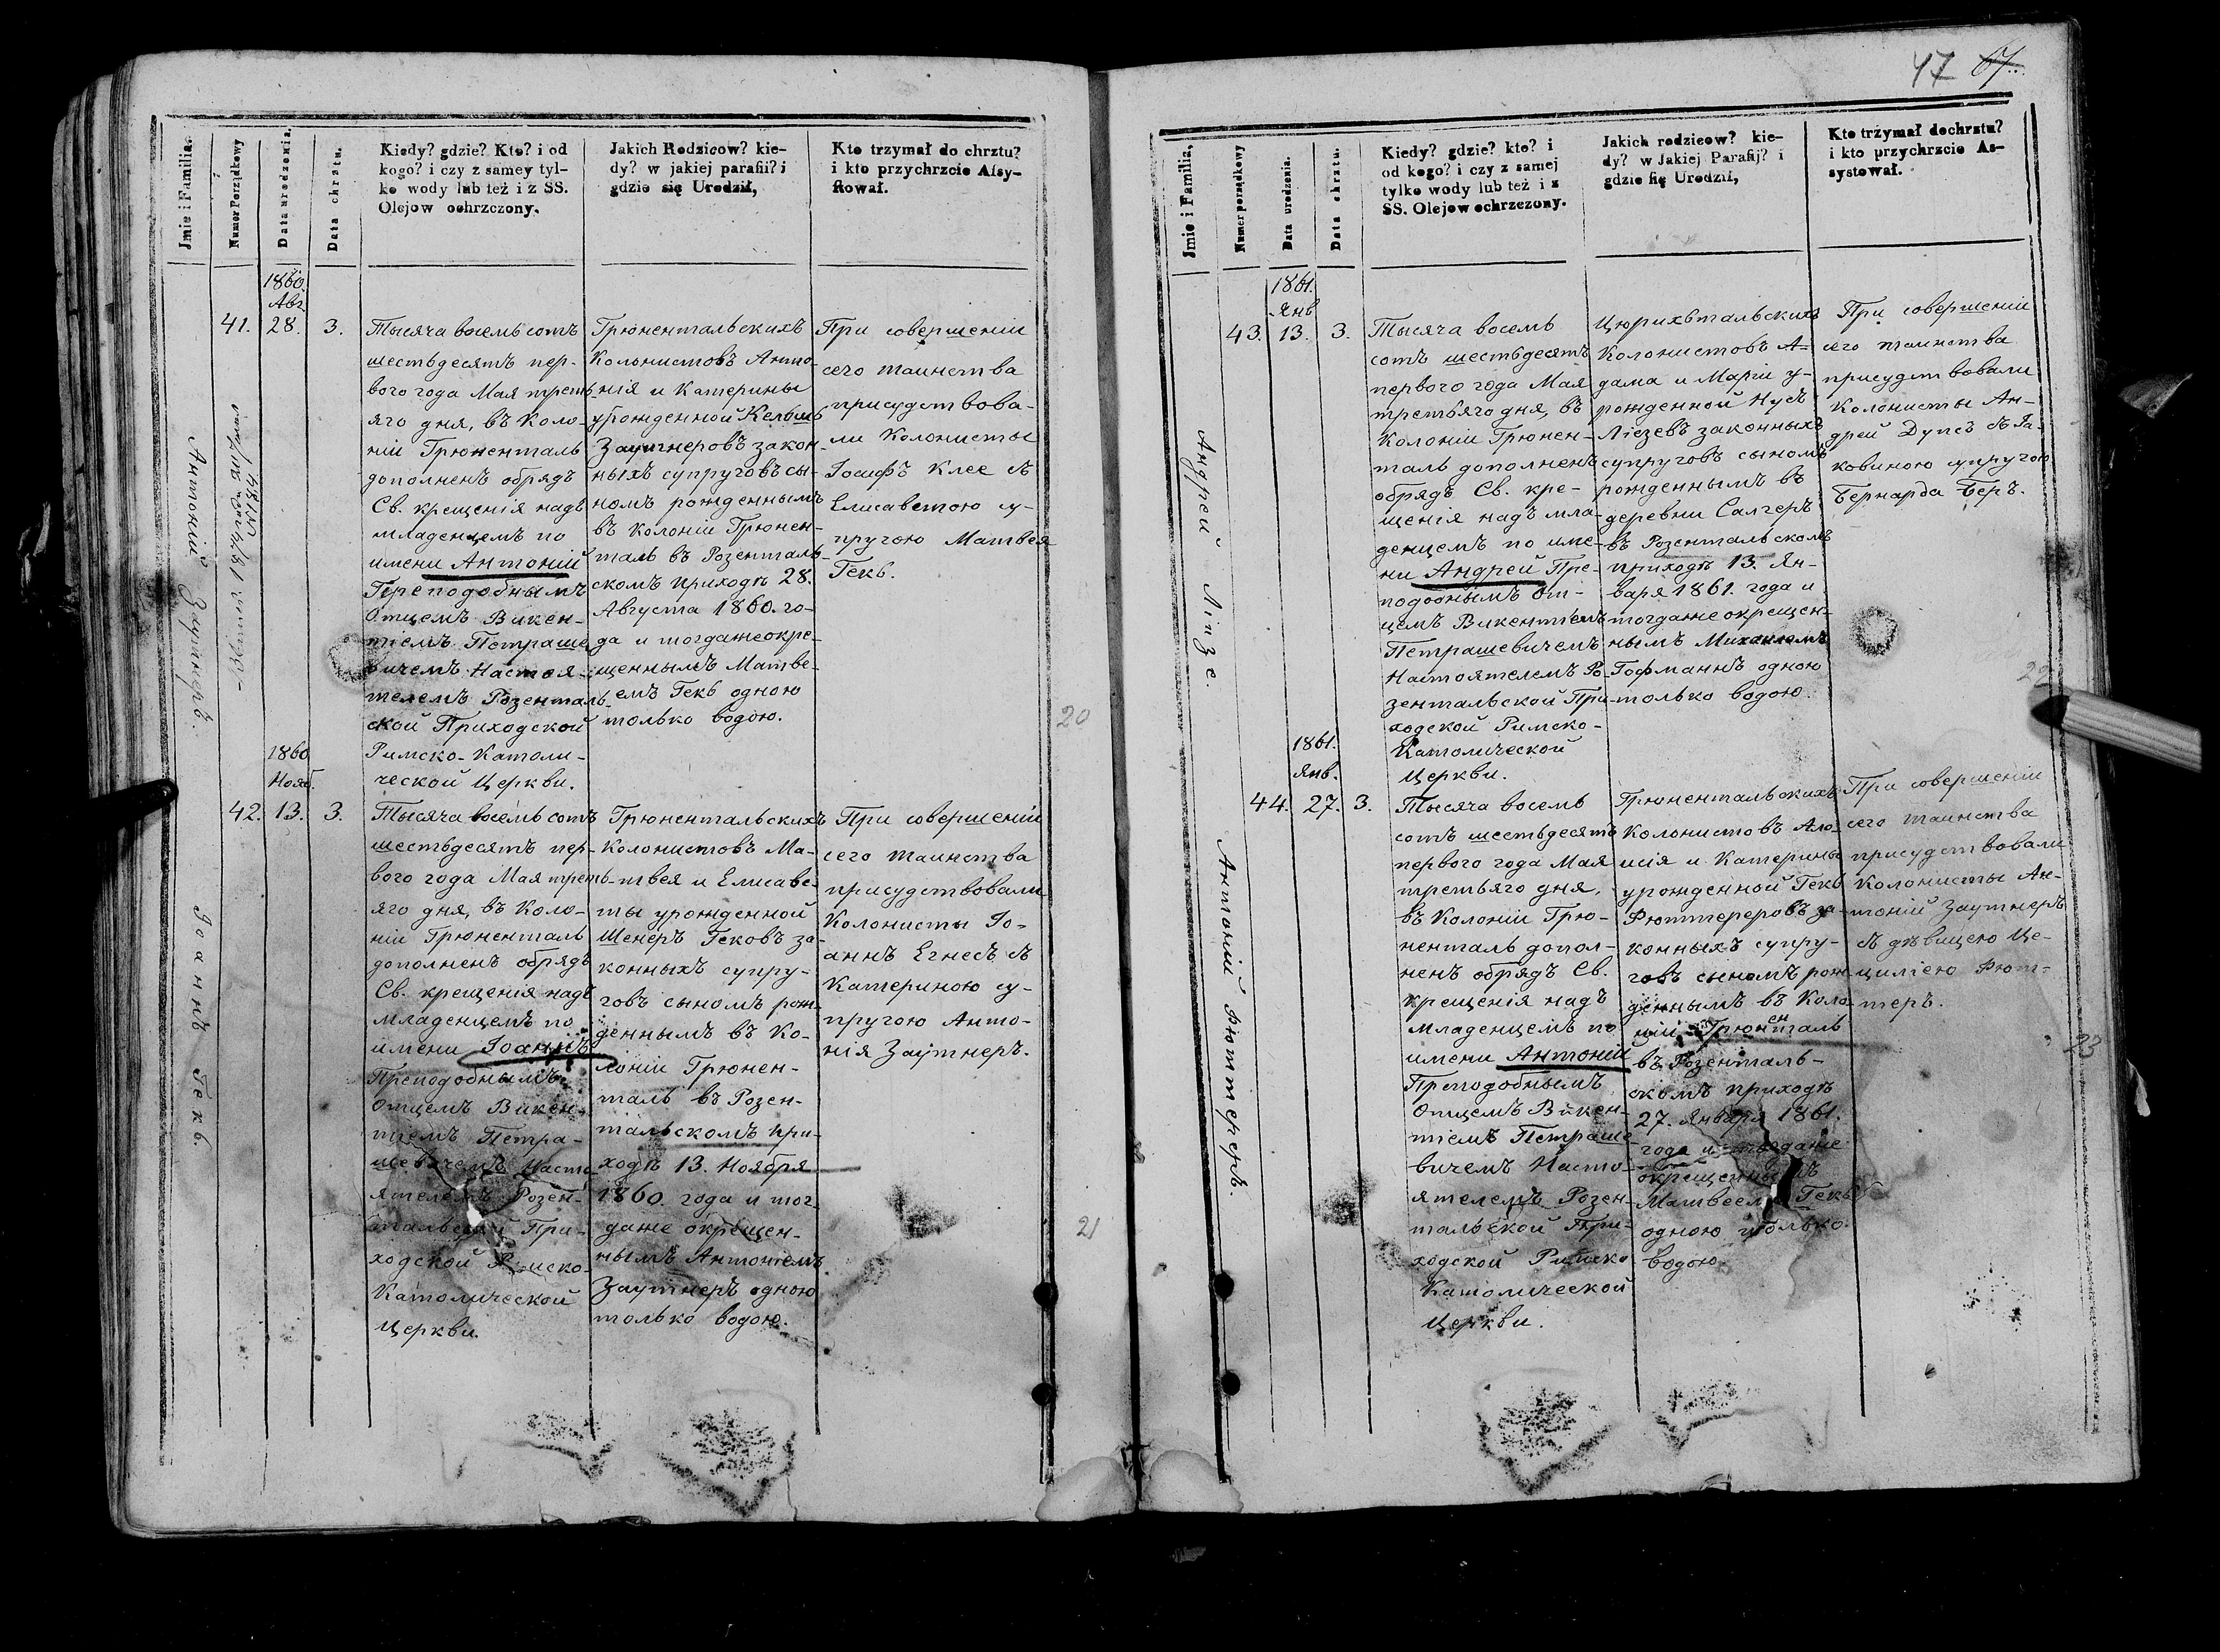 47 67.
Jmie i Familia.
Numer Porządkowy
Data urodzenia.
Data chrztu.
Kiedy? gdzie? Kto? i od
kogo? i czy z samey tyl-
ko wody lub też i z SS.
Olejow ochrzczony.
Jakich Rodzicow? kie-
dy? w jakiej parafii? i
gdzie się Urodził,
Kto trzymał do chrztu?
i kto przychrzcie Afsy-
ftował.
Антоній Заутнеръ.
1860.
Авг.
41. 28. 3.
Тысяча восемь сотъ
шестьдесятъ пер-
вого года Мая треть-
яго дня, въ Коло-
ніи Грюненталь
дополненъ обрядъ
Св. крещенія надъ
младенцемъ по
имени Антоній
Преподобнымъ
Отцемъ Викен-
тіемъ Петраше
вичемъ Настоя-
телемъ Розенталь-
ской Приходской
Римско-Католи-
ческой Церкви.
Грюнентальскихъ
Колонистовъ Анто-
нія и Катерины
урожденной Кельшъ
Заутнеровъ закон-
ныхъ супруговъ сы-
номъ рожденнымъ
въ Колоніи Грюнен-
таль въ Розенталь-
скомъ приходѣ 28.
Августа 1860. го-
да и тогдаже окре-
щеннымъ Матве-
емъ Гекъ одною
только водою.
При совершеніи
сего таинства
присудствова-
ли Колонисты
Іосифъ Клее съ
Елисаветою су-
пругою Матвея
Гекъ.
20
Іоаннъ Гекъ.
1860
Нояб.
42. 13. 3.
Тысяча восемь сотъ
шестьдесятъ пер-
вого года Мая треть-
яго дня, въ Коло-
ніи Грюненталь
дополненъ обрядъ
Св. крещенія надъ
младенцемъ по
имени Іоаннъ
Преподобнымъ
Отцемъ Викен-
тіемъ Петра-
шевичемъ Насто-
ятелемъ Розен-
тальской При-
ходской Римско-
Католической
Церкви.
Грюнентальскихъ
Колонистовъ Ма-
твея и Елисаве-
ты урожденной
Шенеръ Гековъ за-
конныхъ супру-
говъ сыномъ рож-
деннымъ въ Ко-
лоніи Грюнен-
таль въ Розен-
тальскомъ при-
ходѣ 13. Ноября
1860. года и тог-
даже окрещен-
нымъ Антоніемъ
Заутнеръ одною
только водою.
При совершеніи
сего таинства
присудствовали
Колонисты Іо-
аннъ Егнесъ съ
Катериною су-
пругою Анто-
нія Заутнеръ.
21
Jmie i Familia,
Numer porządkowy
Data urodzenia.
Data chrztu.
Kiedy? gdzie? kto? i
od kogo? i czy z samej
tylko wody lub też i z
SS. Olejow ochrzczony.
Jakich rodzicow? kie-
dy? w Jakiej Parafij? i
gdzie fię Urodził,
Kto trżymał dochrztu?
i kto przychrzcie As-
systował.
Андрей Лізе.
1861.
Янв
43. 13. 3.
Тысяча восемь
сотъ шестьдесятъ
первого года Мая
третьяго дня, въ
Колоніи Грюнен-
таль дополненъ
обрядъ Св. кре-
щенія надъ мла-
денцемъ по име-
ни Андрей Пре-
подобнымъ От-
цемъ Викентіемъ
Петрашевичемъ
Настоятелемъ Ро-
зентальской При-
ходской Римско-
Католической
Церкви.
Цюрихтальскихъ
Колонистовъ А-
дама и Маріи у-
рожденной Нусъ
Лізевъ законныхъ
супруговъ сыномъ
рожденнымъ въ
деревни Салгеръ
въ Розентальскомъ
приходѣ 13. Ян-
варя 1861. года и
тогдаже окрещен-
нымъ Михаиломъ
Гофманнъ одною
только водою.
При совершеніи
сего таинства
присудствовали
Колонисты Ан-
дрей Дупсъ съ Я-
ковиною супругою
Бернарда Беръ.
22
Антоній Фюттереръ.
1861.
Янв.
44. 27. 3.
Тысяча восемь
сотъ шестьдесятъ
первого года Мая
третьяго дня,
въ Колоніи Грю-
ненталь допол-
ненъ обрядъ Св.
крещенія надъ
младенцемъ по
имени Антоній
Преподобнымъ
Отцемъ Викен-
тіемъ Петраше
вичемъ Насто-
ятелемъ Розен-
тальской При-
ходской Римско
Католической
Церкви.
Грюнентальскихъ
Колонистовъ Ало-
исія и Катерины
урожденной Гекъ
Фюттереровъ за-
конныхъ супру-
говъ сыномъ рож-
деннымъ въ Коло-
ніи Грюненталь
въ Розенталь-
скомъ приходѣ
27. Января 1861.
года и тогдаже
окрещеннымъ
Матвеемъ Гекъ
одною только
водою.
При совершеніи
сего таинства
присудствовали
Колонисты Ан-
тоній Заутнеръ
съ дѣвицею Це-
циліею Фют-
теръ.
23